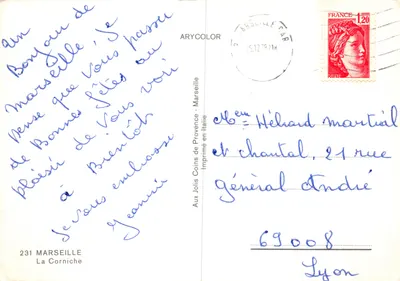 un
Bonjour de
Marseille, Je
Pense que Vous passez
de Bonnes fêtes au
plaisir de Vous voir
à Bientôt
Je vous embrasse
Jeannie
231 MARSEILLE
La Corniche
ARYCOLOR
Aux Jolis Coins de Provence - Marseille
Imprimé en Italie
FRANCE
1,20
Hélard martial
et chantal, 21 rue
général André
69008
Lyon